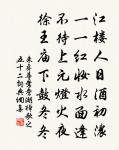 江樓人日酒初濃
一一紅妝水面逢
不待上元燈火夜
徐王廟下鼓冬冬
朱彝尊鴛鴦湖棹歌之
五十二詞興閒集